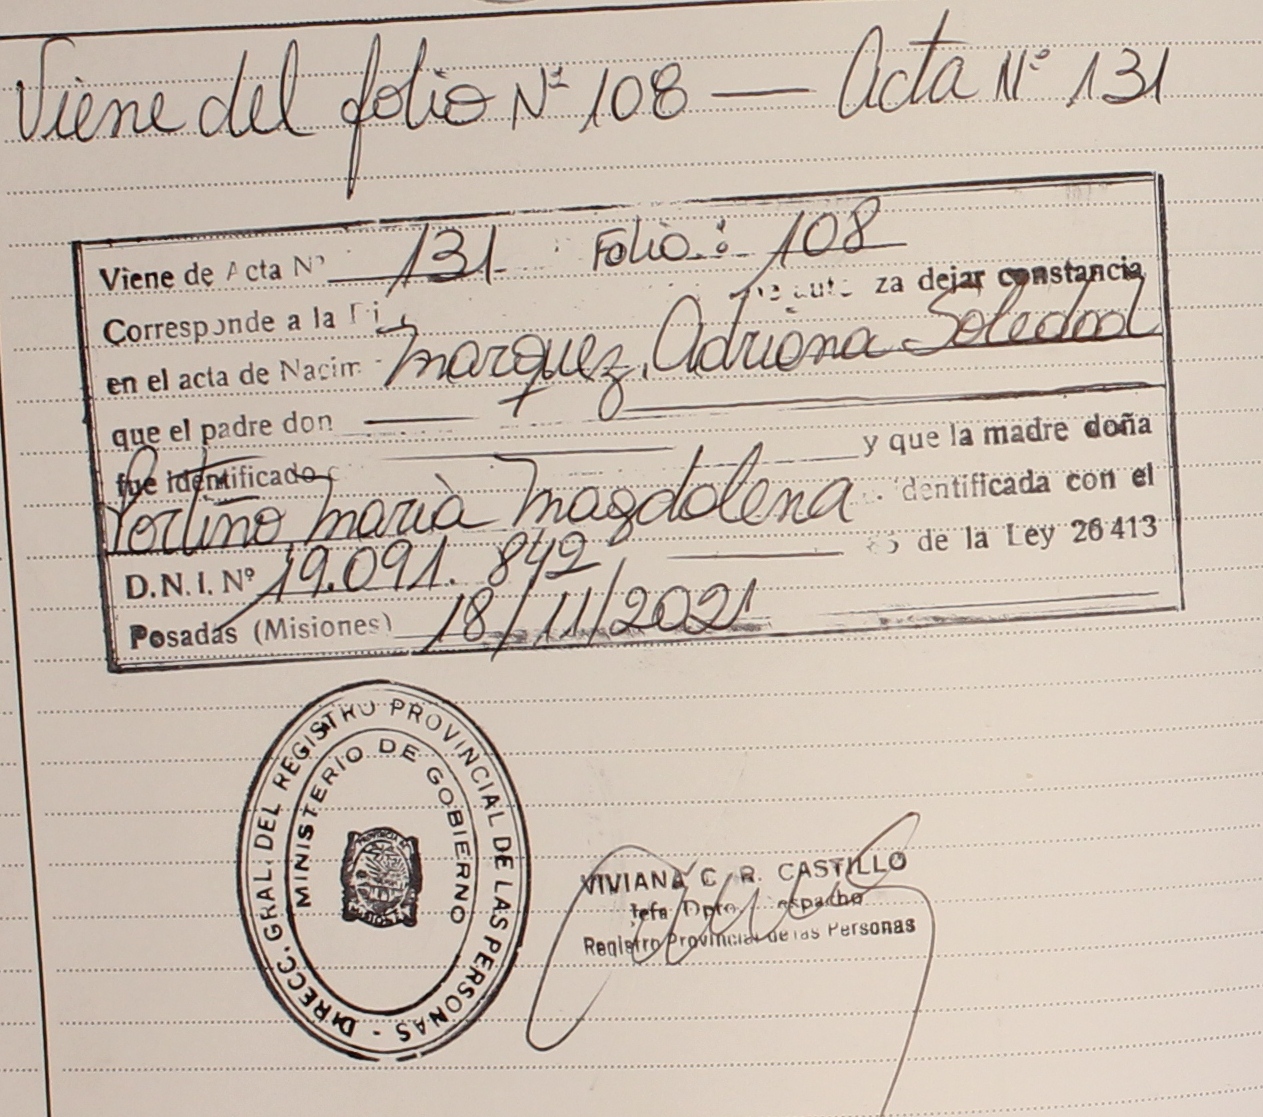 Viene del folio Nº 108 — Acta Nº 131
Viene de Acta Nº 131 Folio: 108
Corresponde a la za dejar constancia
en el acta de Nacim Marquez, Adriana Soledad
que el padre don
fue identificado y que la madre doña
Portiño María Magdalena identificada con el
D.N.I. Nº 19.091.842 de la Ley 26413
Posadas (Misiones) 18/11/2021
DIRECC. GRAL. DEL REGISTRO PROVINCIAL DE LAS PERSONAS -
MINISTERIO DE GOBIERNO
VIVIANA C. R. CASTILLO
Jefa Dpto. espacho
Registro Provincial de las Personas